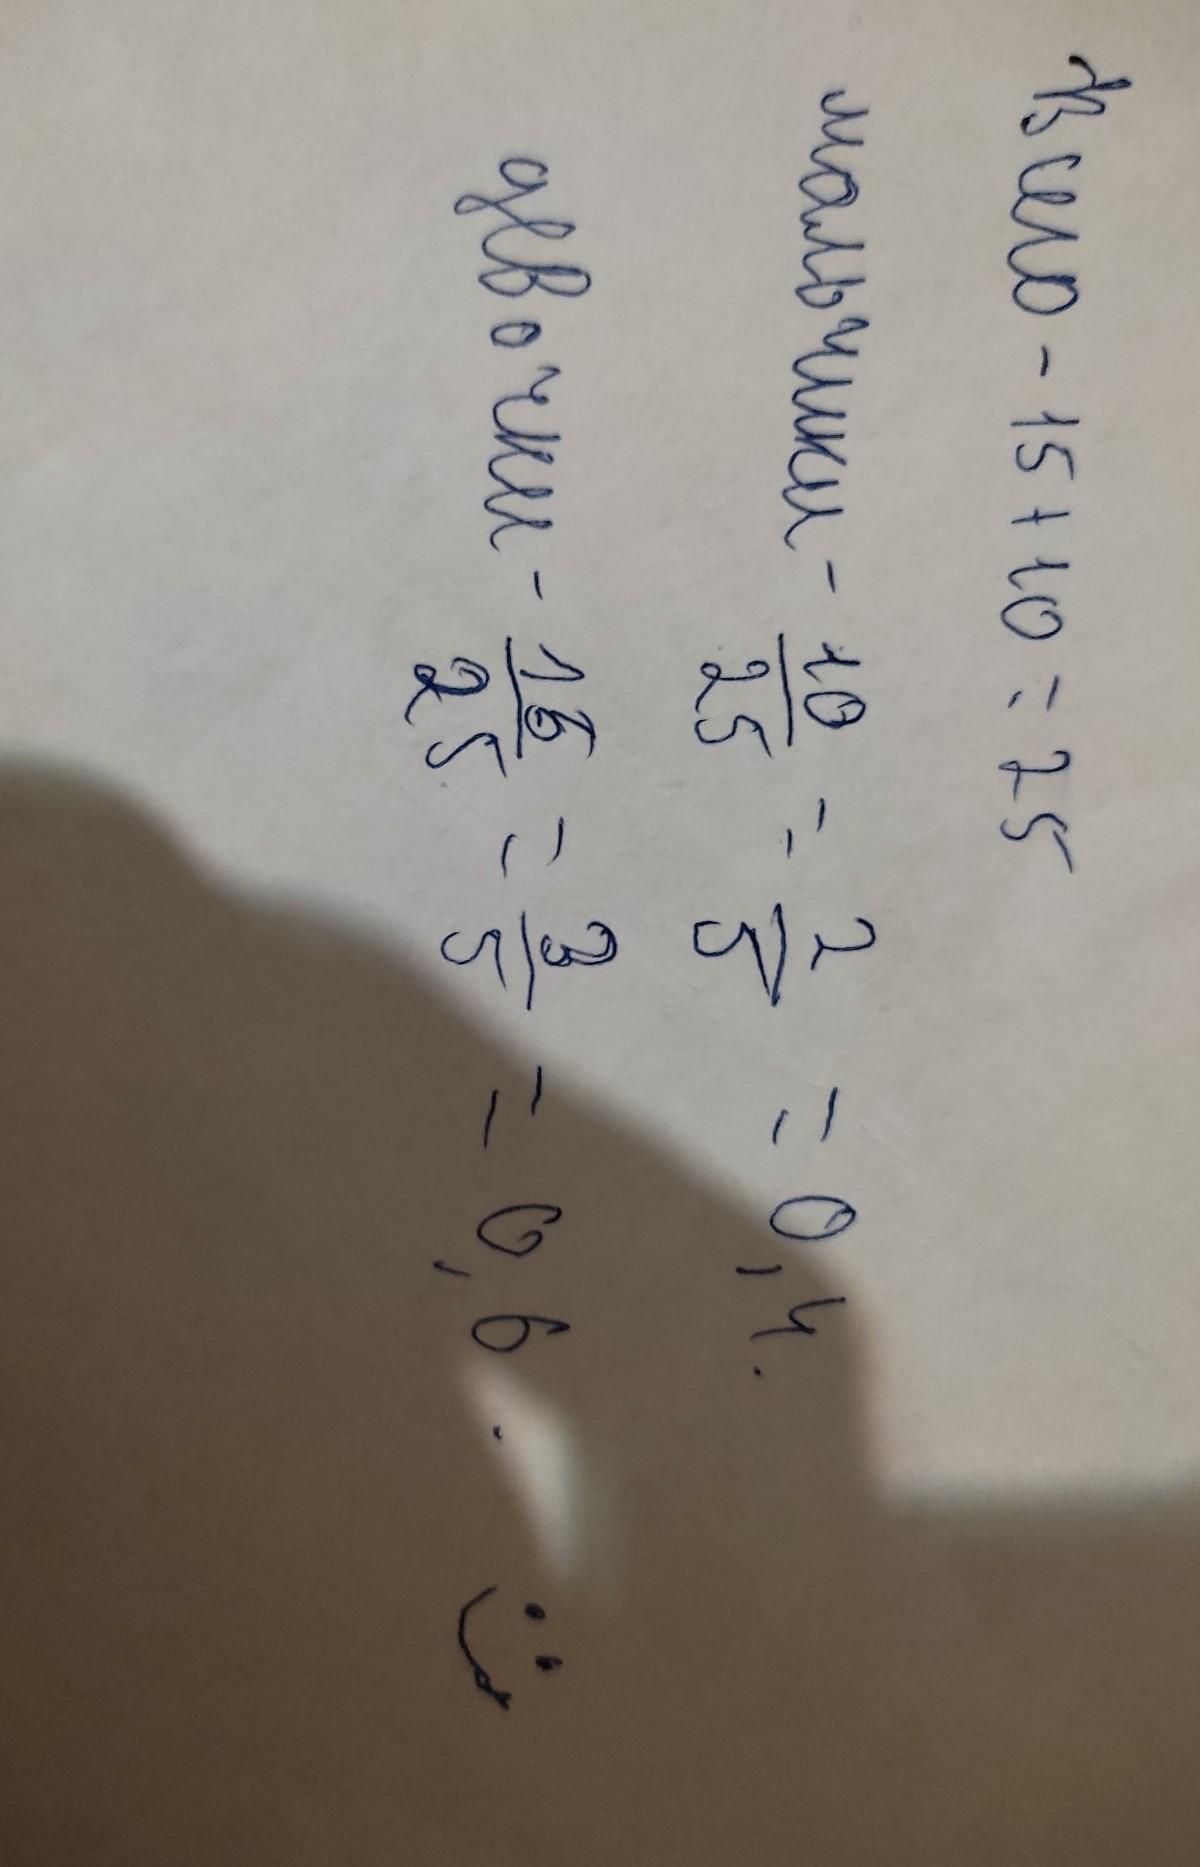 Всего - 15 + 10 = 25
мальчики - 10/25 = 2/5 = 0,4.
девочки - 15/25 = 3/5 = 0,6.